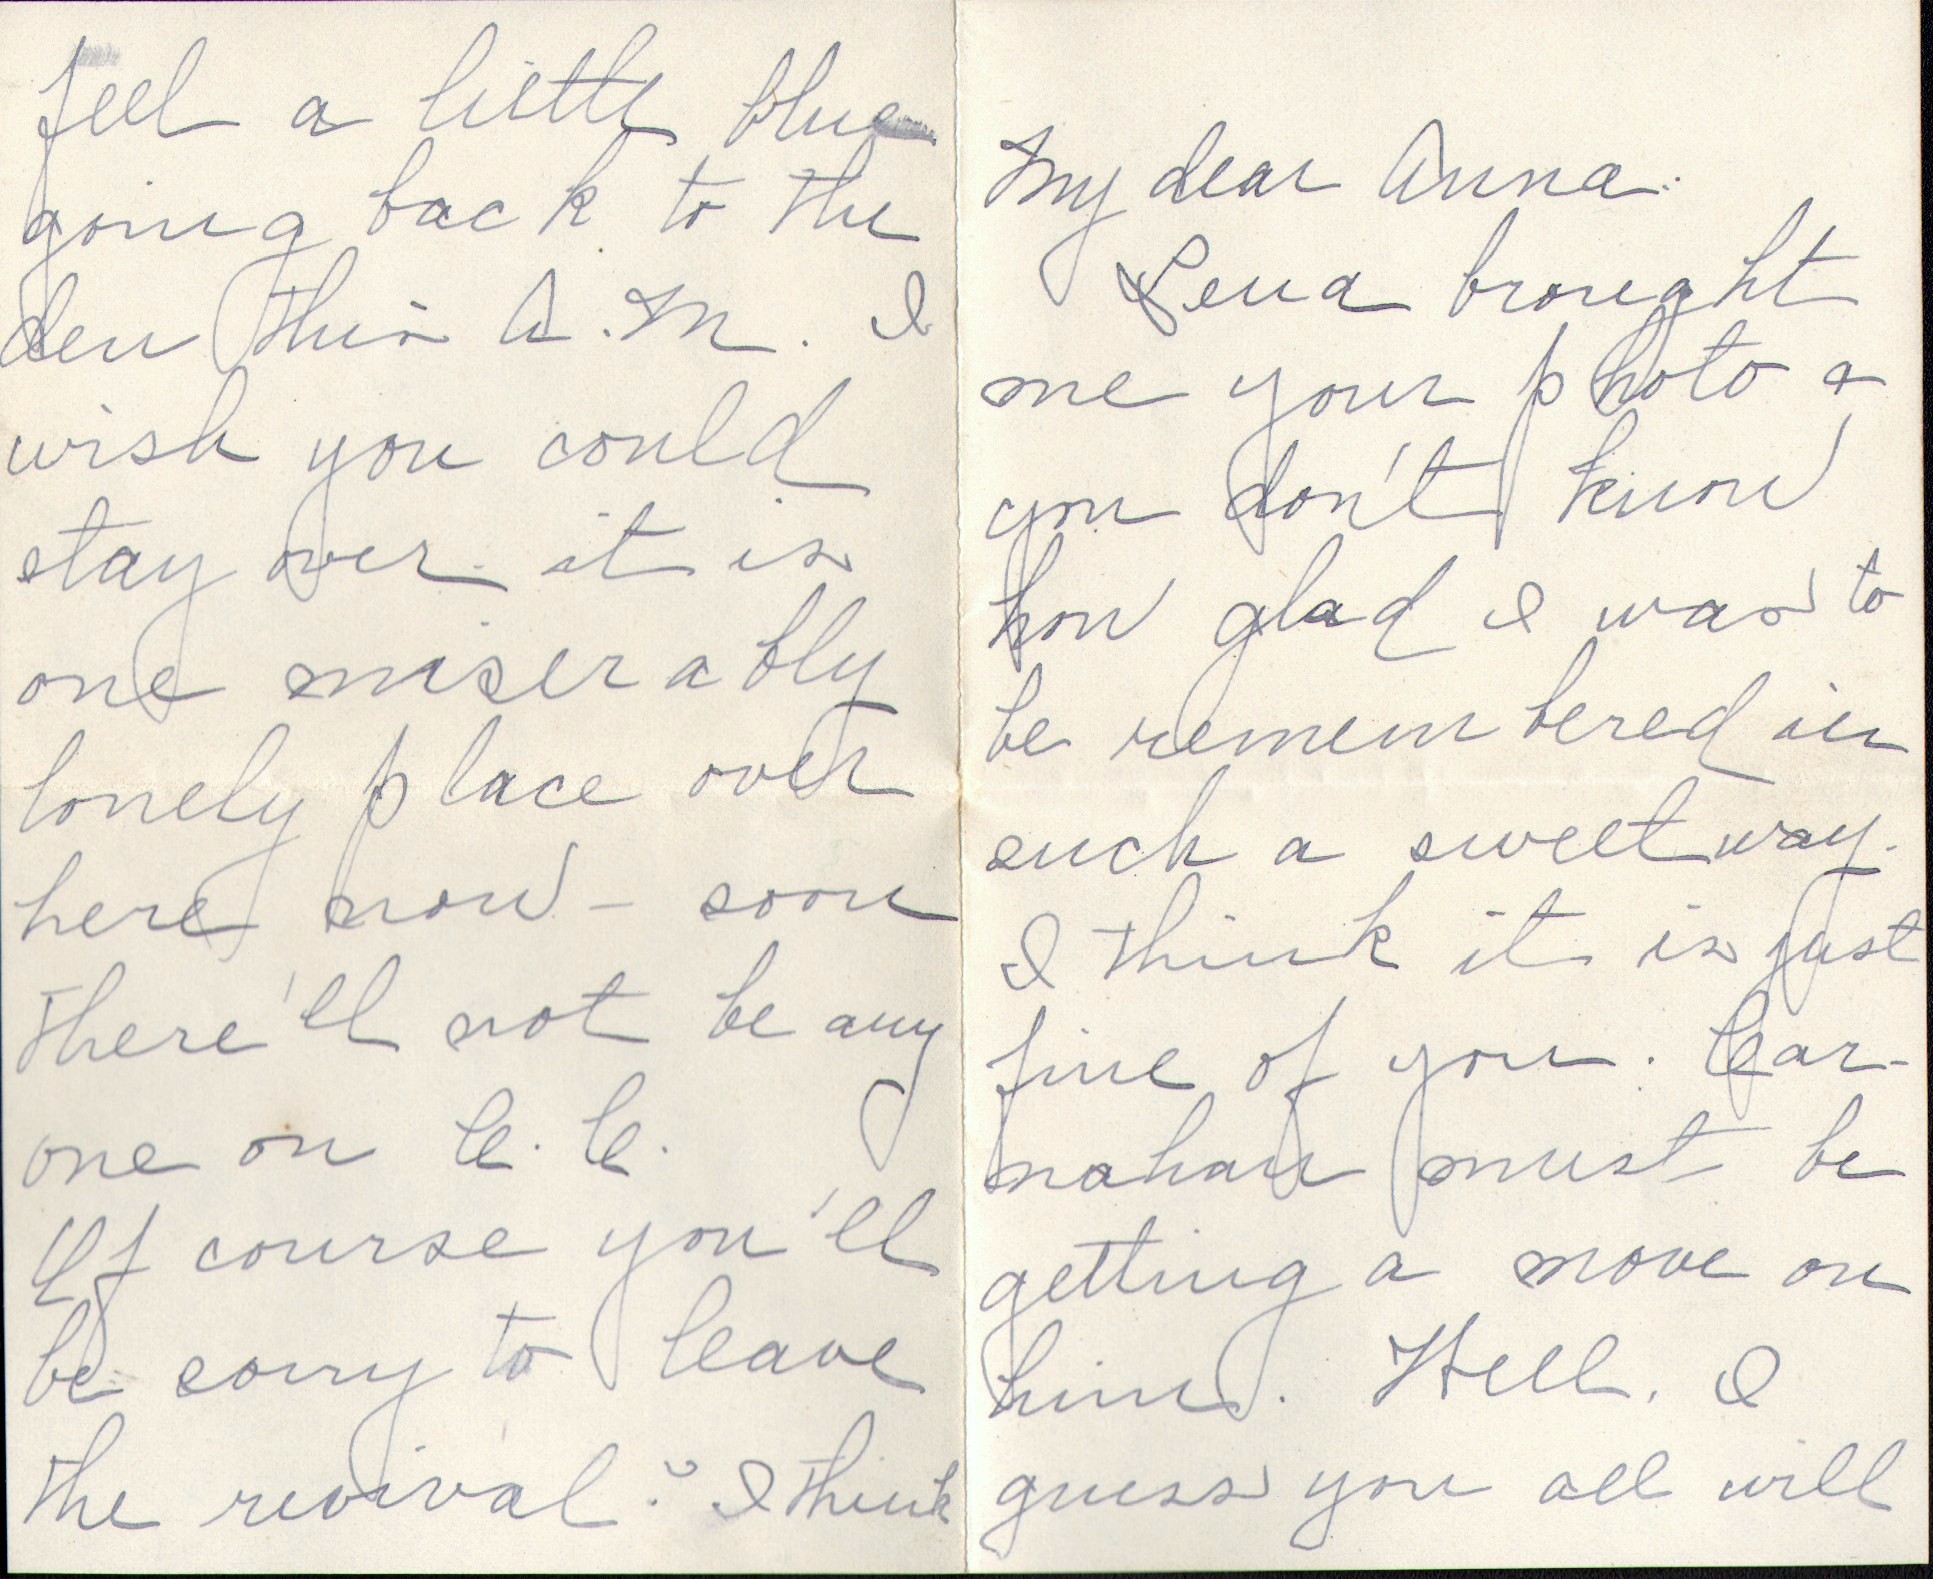 My dear Anna:
Lena brought
me your photo &
you don't know
how glad I was to
be remembered in
such a sweet way.
I think it is just
fine of you. Car-
nahan must be
getting a move on
him. Well, I
guess you all will
feel a little blue
going back to the
den this A.M. I
wish you could
stay over. it is
one miserably
lonely place over
here now - soon
there'll not be any
one on C. C.
Of course you'll
be sorry to leave
the revival? I think